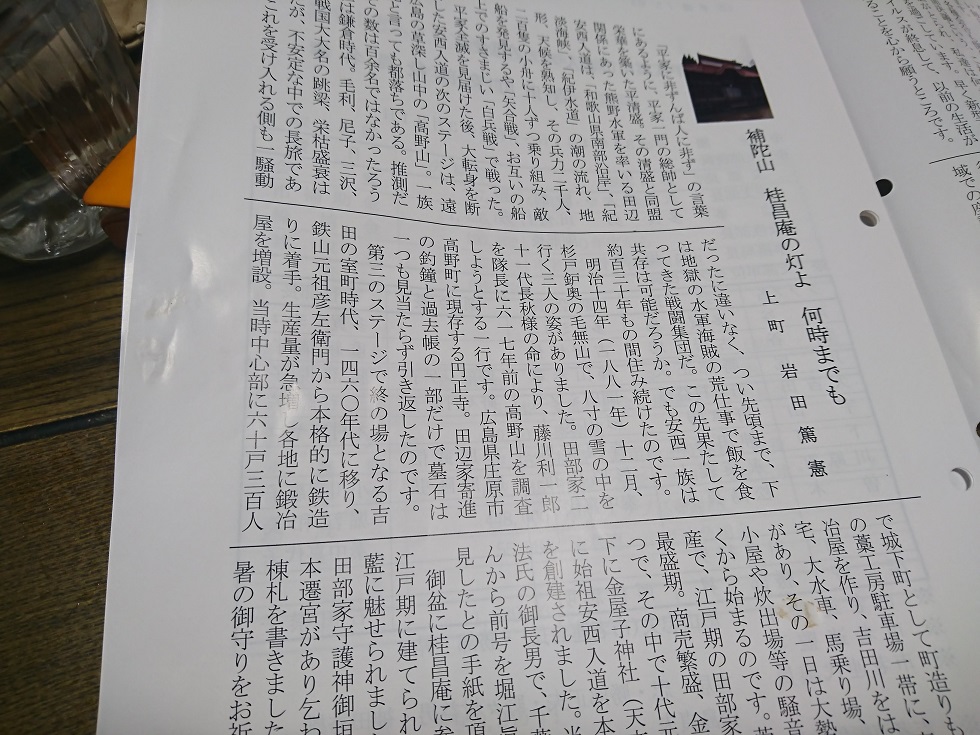 補陀山 桂昌庵の灯よ 何時までも
上町 岩田篤憲
「平家に非ずんば人に非ず」の言葉
にあるように、平家一門の総帥として
栄華を築いた平清盛。その清盛と同盟
関係にあった熊野水軍を率いる田辺
安西入道は、「和歌山県南部沿岸」、「紀
淡海峡」、「紀伊水道」の潮の流れ、地
形、天候を熟知し、その兵力二千人、
二百隻の小舟に十人ずつ乗り組み、敵
船を発見するや「矢合戦」、お互いの船
上でのすさまじい「白兵戦」で戦った。
平家全滅を見届けた後、大転身を断
した安西入道の次のステージは、遠
広島の草深し山中の「高野山」。一族
と言っても都落ちである。推測だ
の数は百余名ではなかったろう
は鎌倉時代。毛利、尼子、三沢、
戦国大大名の跳梁、栄枯盛衰は
だが、不安定な中での長旅であ
これを受け入れる側も一騒動
だったに違いなく、つい先頃まで、下
は地獄の水軍海賊の荒仕事で飯を食
ってきた戦闘集団だ。この先果たして
共存は可能だろうか。でも安西一族は
約百三十年もの間住み続けたのです。
明治十四年（一八八一年）十二月、
杉戸鈩奥の毛無山で、八寸の雪の中を
行く三人の姿がありました。田部家二
十一代長秋様の命により、藤川利一郎
を隊長に六一七年前の高野山を調査
しようとする一行です。広島県庄原市
高野町に現存する円正寺。田辺家寄進
の釣鐘と過去帳の一部だけで墓石は
一つも見当たらず引き返したのです。
第三のステージで終の場となる吉
田の室町時代、一四六〇年代に移り、
鉄山元祖彦左衛門から本格的に鉄造
りに着手。生産量が急増し各地に鍛冶
屋を増設。当時中心部に六十戸三百人
で城下町として町造りも
の藁工房駐車場一帯に、
冶屋を作り、吉田川をは
宅、大水車、馬乗り場、
があり、その一日は大勢
小屋や炊出場等の騒音
くから始まるのです。
産で、江戸期の田部家
最盛期。商売繁盛、金
つで、その中で十代元
下に金屋子神社（天
に始祖安西入道を本
を創建されました。
法氏の御長男で、千葉
んから前号を堀江
見したとの手紙を頂
御盆に桂昌庵に参
江戸期に建てられ
藍に魅せられまし
田部家守護神御垣
本遷宮があり乞わ
棟札を書きました
暑の御守りをお祈
イルスが終息して、以前の生活が
ることを心から願うところです。